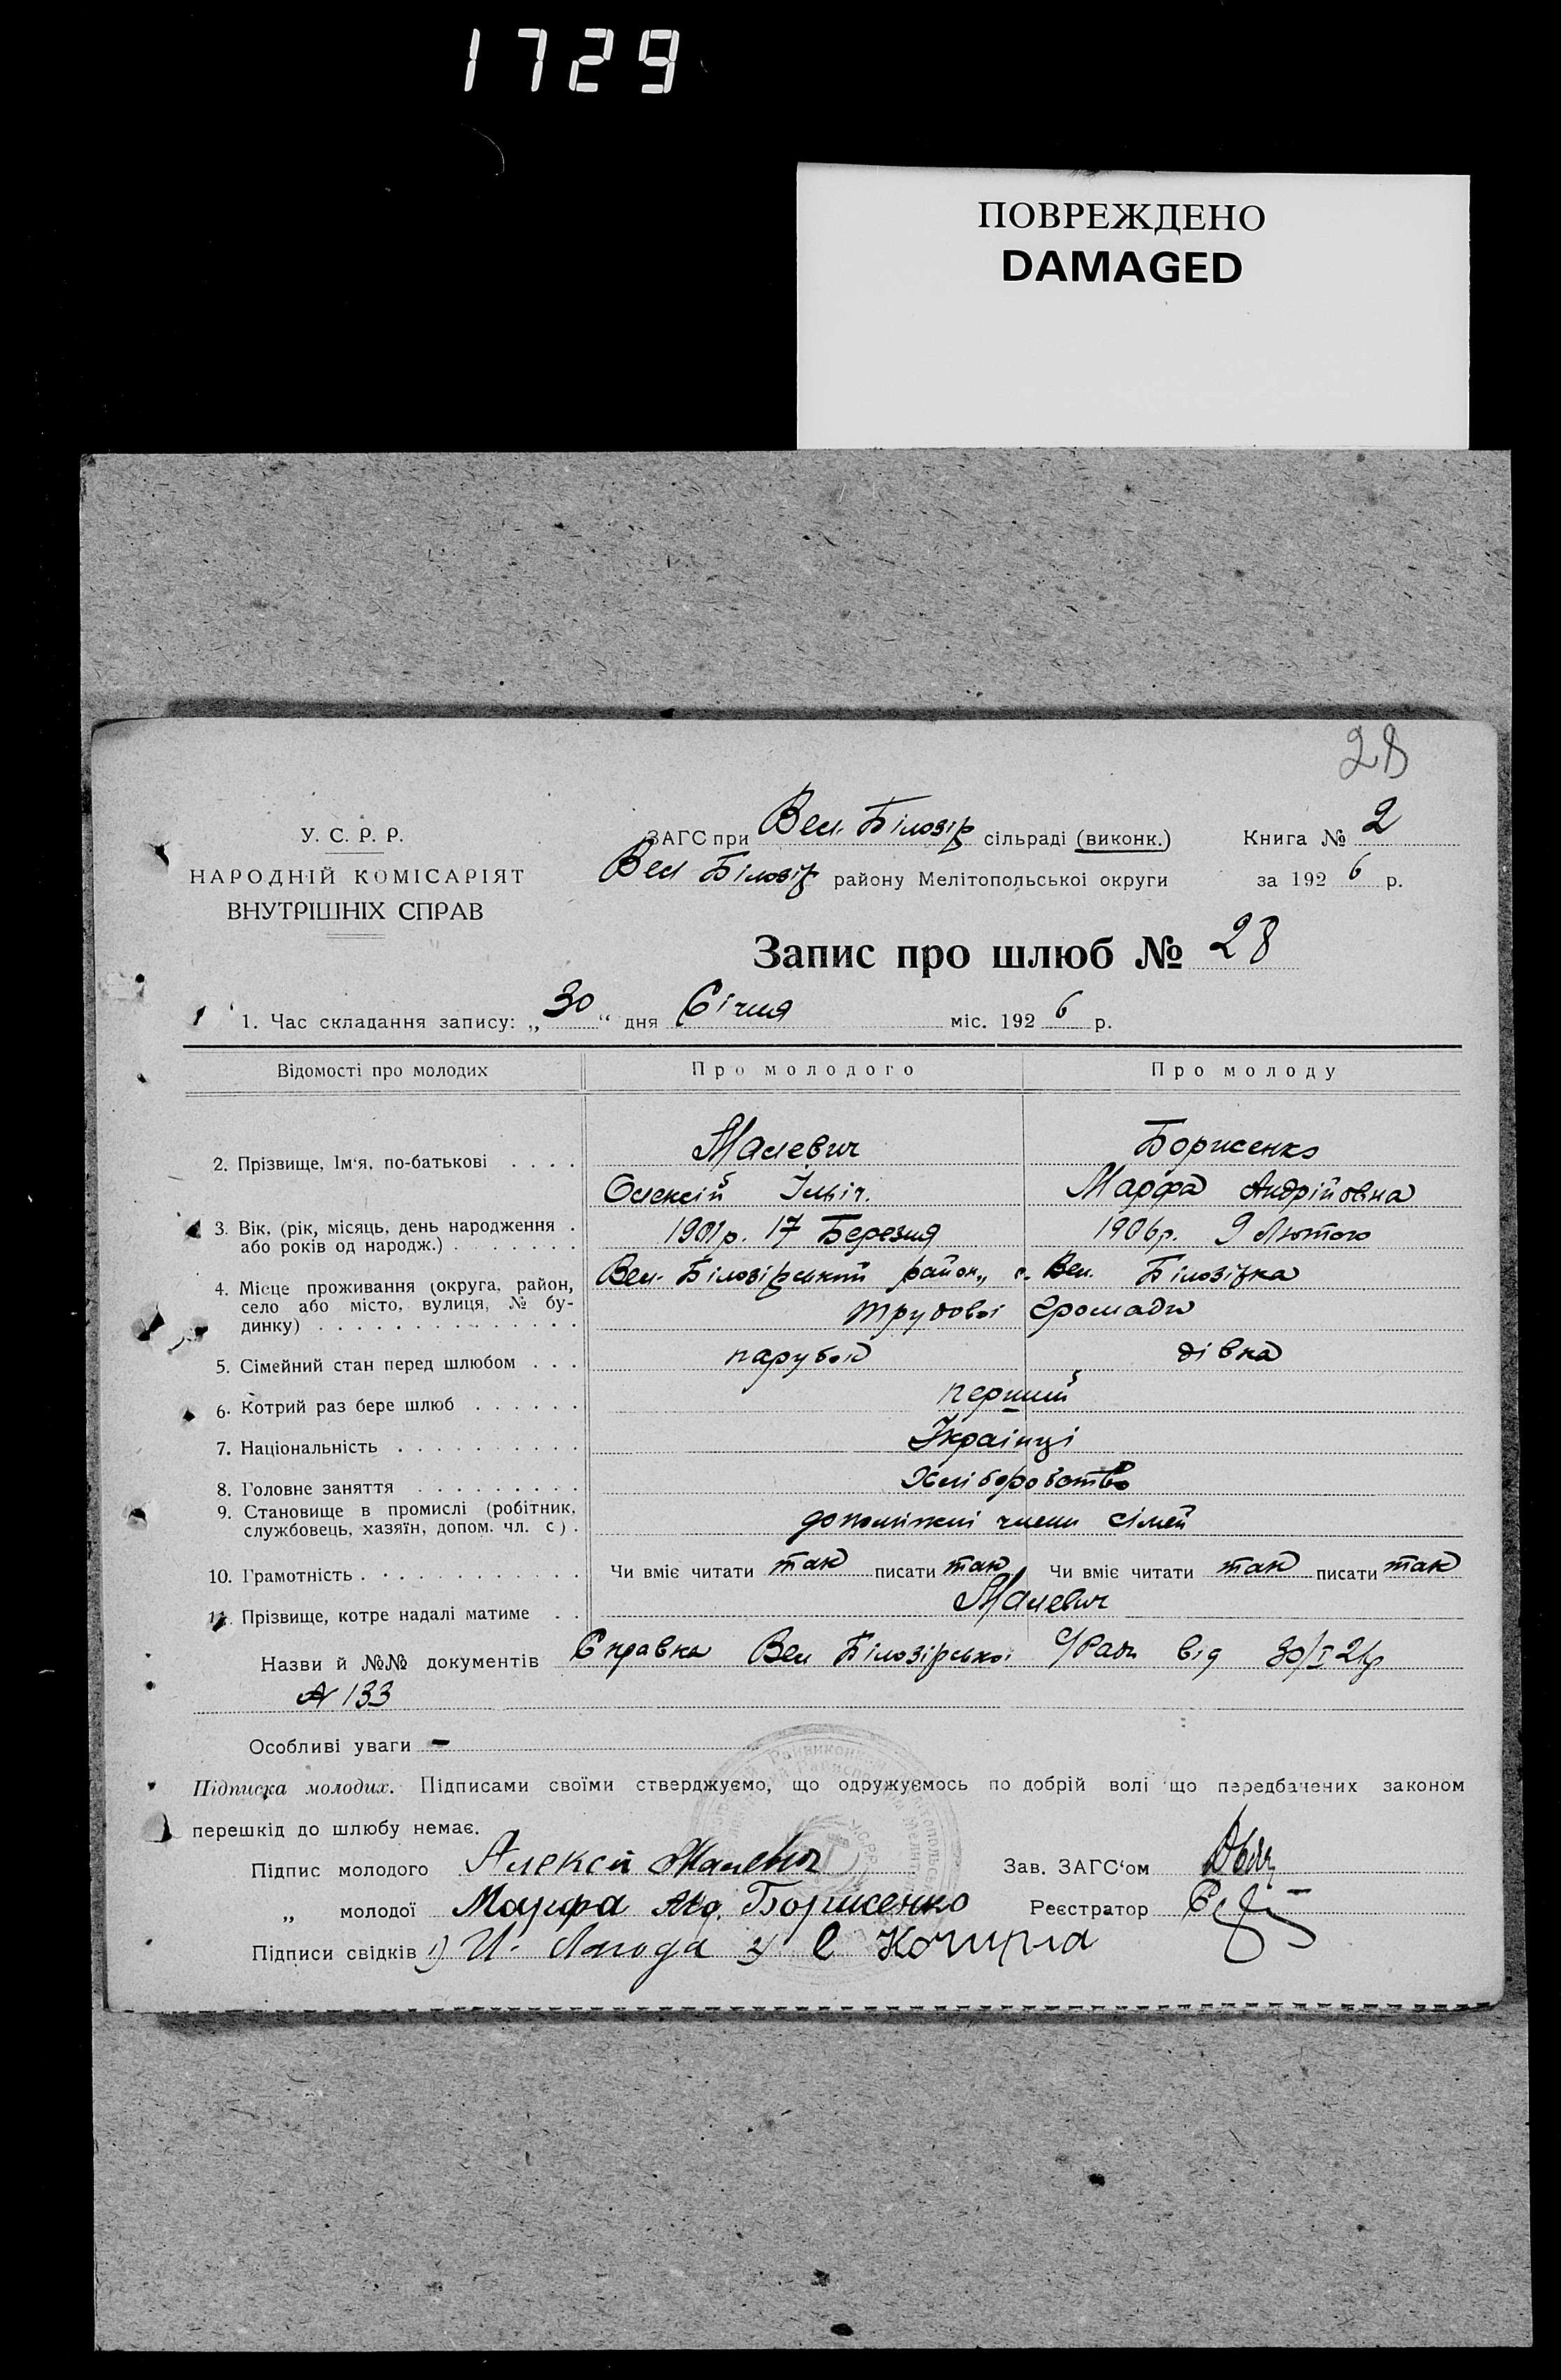 1729
ПОВРЕЖДЕНО
DAMAGED
28
У. С. Р. Р.
НАРОДНІЙ КОМІСАРІЯТ
ВНУТРІШНІХ СПРАВ
ЗАГС при Вел. Білозір сільраді (виконк.)
Вел Білозір району Мелітопольської округи
Книга № 2
за 1926 р.
Запис про шлюб № 28
1. Час складання запису: „30“ дня Січня міс. 1926 р.
Відомості про молодих Про молодого Про молоду
2. Прізвище, Ім'я, по-батькові . . . . Малевич Борисенко
Олексій Ільіч. Марфа Андрійовна
3. Вік, (рік, місяць, день народження . 1901р. 17 Березня 1906р. 9 Лютого
або років од народж.) . . . . . . .
4. Місце проживання (округа, район, Вел. Білозірський район,, с. Вел. Білозірка
село або місто, вулиця, № бу-
динку) . . . . . . . . . . . . . . трудової громади
5. Сімейний стан перед шлюбом . . . парубок дівка
6. Котрий раз бере шлюб . . . . . . перший
7. Національність . . . . . . . . . . Українці
8. Головне заняття . . . . . . . . . Хліборобство
9. Становище в промислі (робітник,
службовець, хазяїн, допом. чл. с) . допоміжні члени сімей
10. Грамотність . . . . . . . . . . . . Чи вміє читати так писати так Чи вміє читати так писати так
11. Прізвище, котре надалі матиме . . Малевич
Назви й №№ документів Справка Вел Білозірської С/Ради від 30/I 26р
№ 133
Особливі уваги –
Підписка молодих. Підписами своїми стверджуємо, що одружуємось по добрій волі що передбачених законом
перешкід до шлюбу немає.
Підпис молодого Алексей Малевич Зав. ЗАГС'ом
„ молодої Марфа Анд. Борисенко Реєстратор
Підписи свідків 1) И. Лягода 2) С